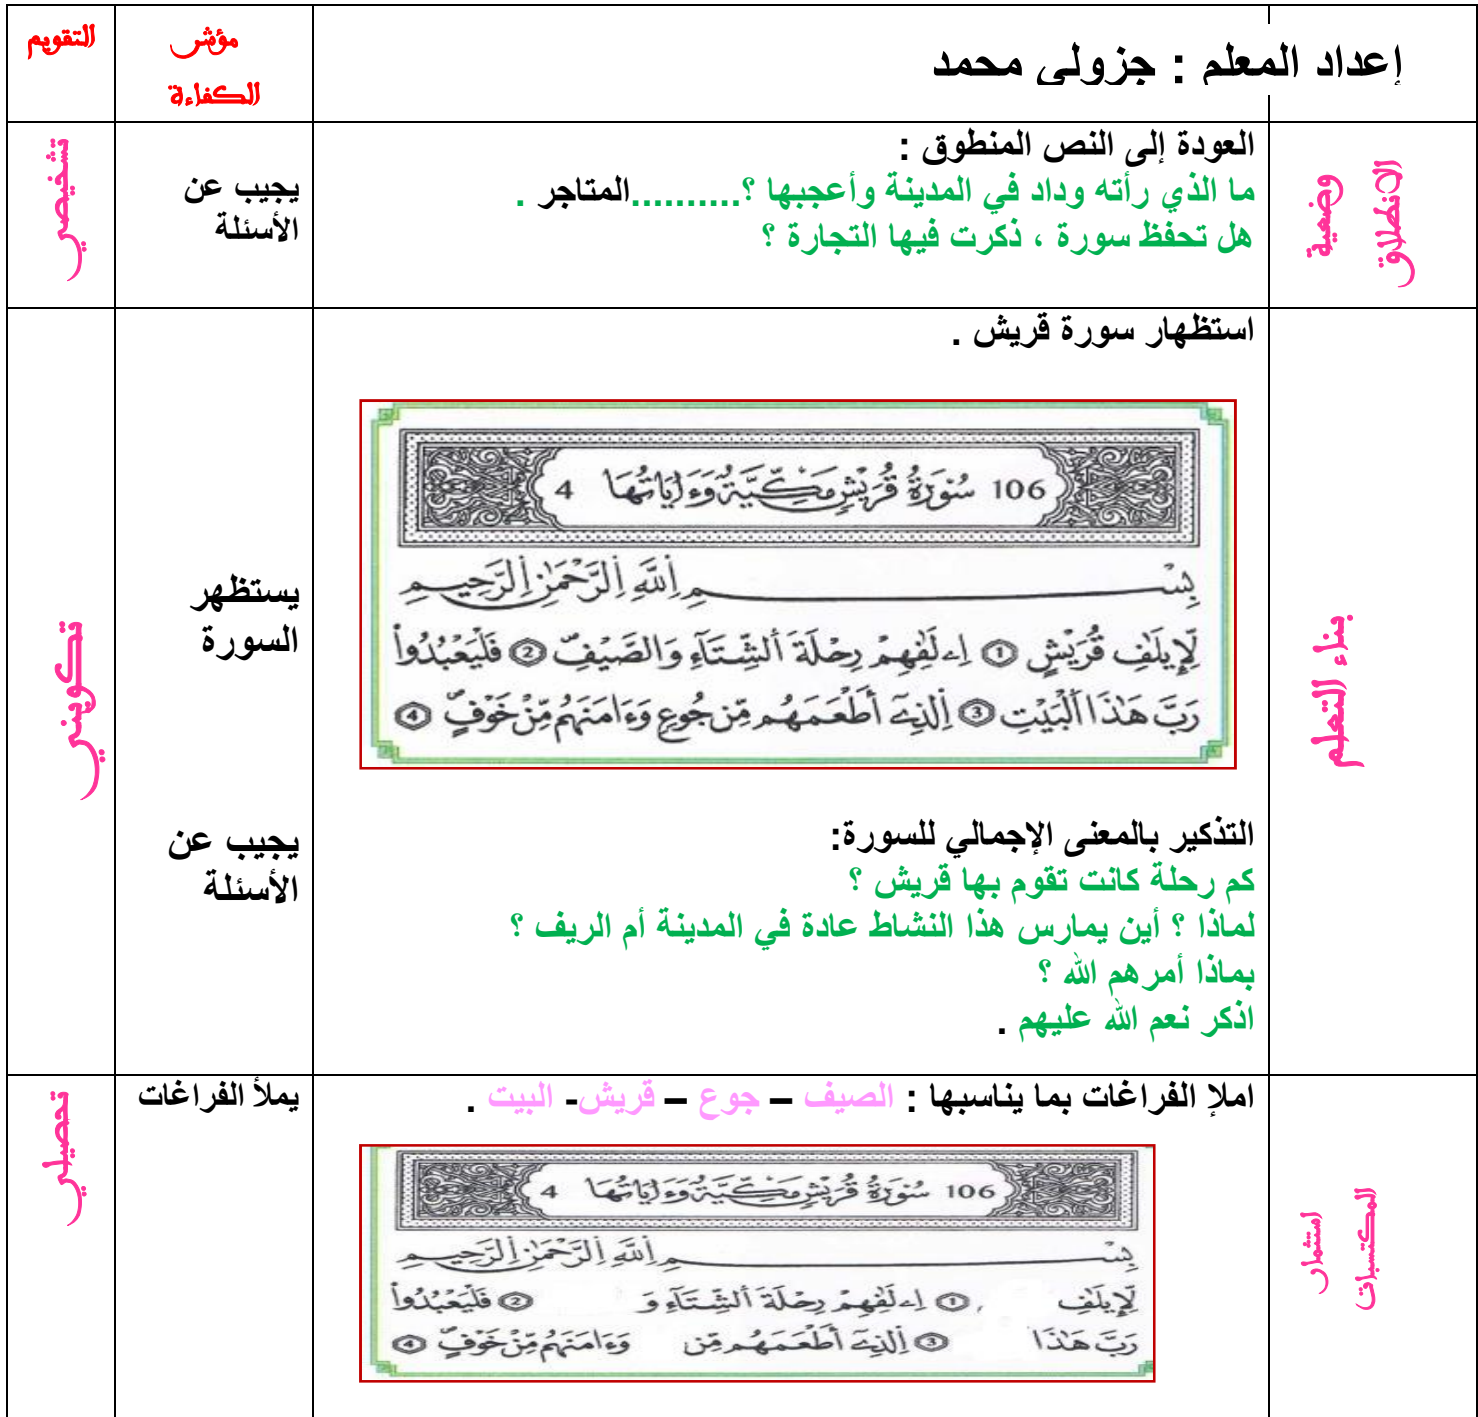 إعداد المعلم : جزولي محمد
مؤشر
الكفاءة
التقويم
وضعية
الانطلاق
العودة إلى النص المنطوق :
ما الذي رأته وداد في المدينة وأعجبها ؟..........المتاجر .
هل تحفظ سورة ، ذكرت فيها التجارة ؟
يجيب عن
الأسئلة
تشخيصي
بناء التعلم
استظهار سورة قريش .
106 سُورَةُ قُرَيْشٍ مَكِّيَّةٌ وَءَايَاتُهَا 4
بِسْمِ اِللَّهِ اِلرَّحْمَٰنِ اِلرَّحِيمِ
لِإِيلَٰفِ قُرَيْشٍ ① إِۦلَٰفِهِمْ رِحْلَةَ اَلشِّتَآءِ وَالصَّيْفِ ② فَلْيَعْبُدُواْ
رَبَّ هَٰذَا اَلْبَيْتِ ③ اِلذِےٓ أَطْعَمَهُم مِّن جُوعٍ وَءَامَنَهُم مِّنْ خَوْفٍ ④
التذكير بالمعنى الإجمالي للسورة:
كم رحلة كانت تقوم بها قريش ؟
لماذا ؟ أين يمارس هذا النشاط عادة في المدينة أم الريف ؟
بماذا أمرهم الله ؟
اذكر نعم الله عليهم .
يستظهر
السورة
يجيب عن
الأسئلة
تكويني
استثمار
المكتسبات
املإ الفراغات بما يناسبها : الصيف – جوع – قريش- البيت .
106 سُورَةُ قُرَيْشٍ مَكِّيَّةٌ وَءَايَاتُهَا 4
بِسْمِ اِللَّهِ اِلرَّحْمَٰنِ اِلرَّحِيمِ
لِإِيلَٰفِ ① إِۦلَٰفِهِمْ رِحْلَةَ اَلشِّتَآءِ وَ ② فَلْيَعْبُدُواْ
رَبَّ هَٰذَا ③ اِلذِےٓ أَطْعَمَهُم مِّن وَءَامَنَهُم مِّنْ خَوْفٍ ④
يملأ الفراغات
تحصيلي